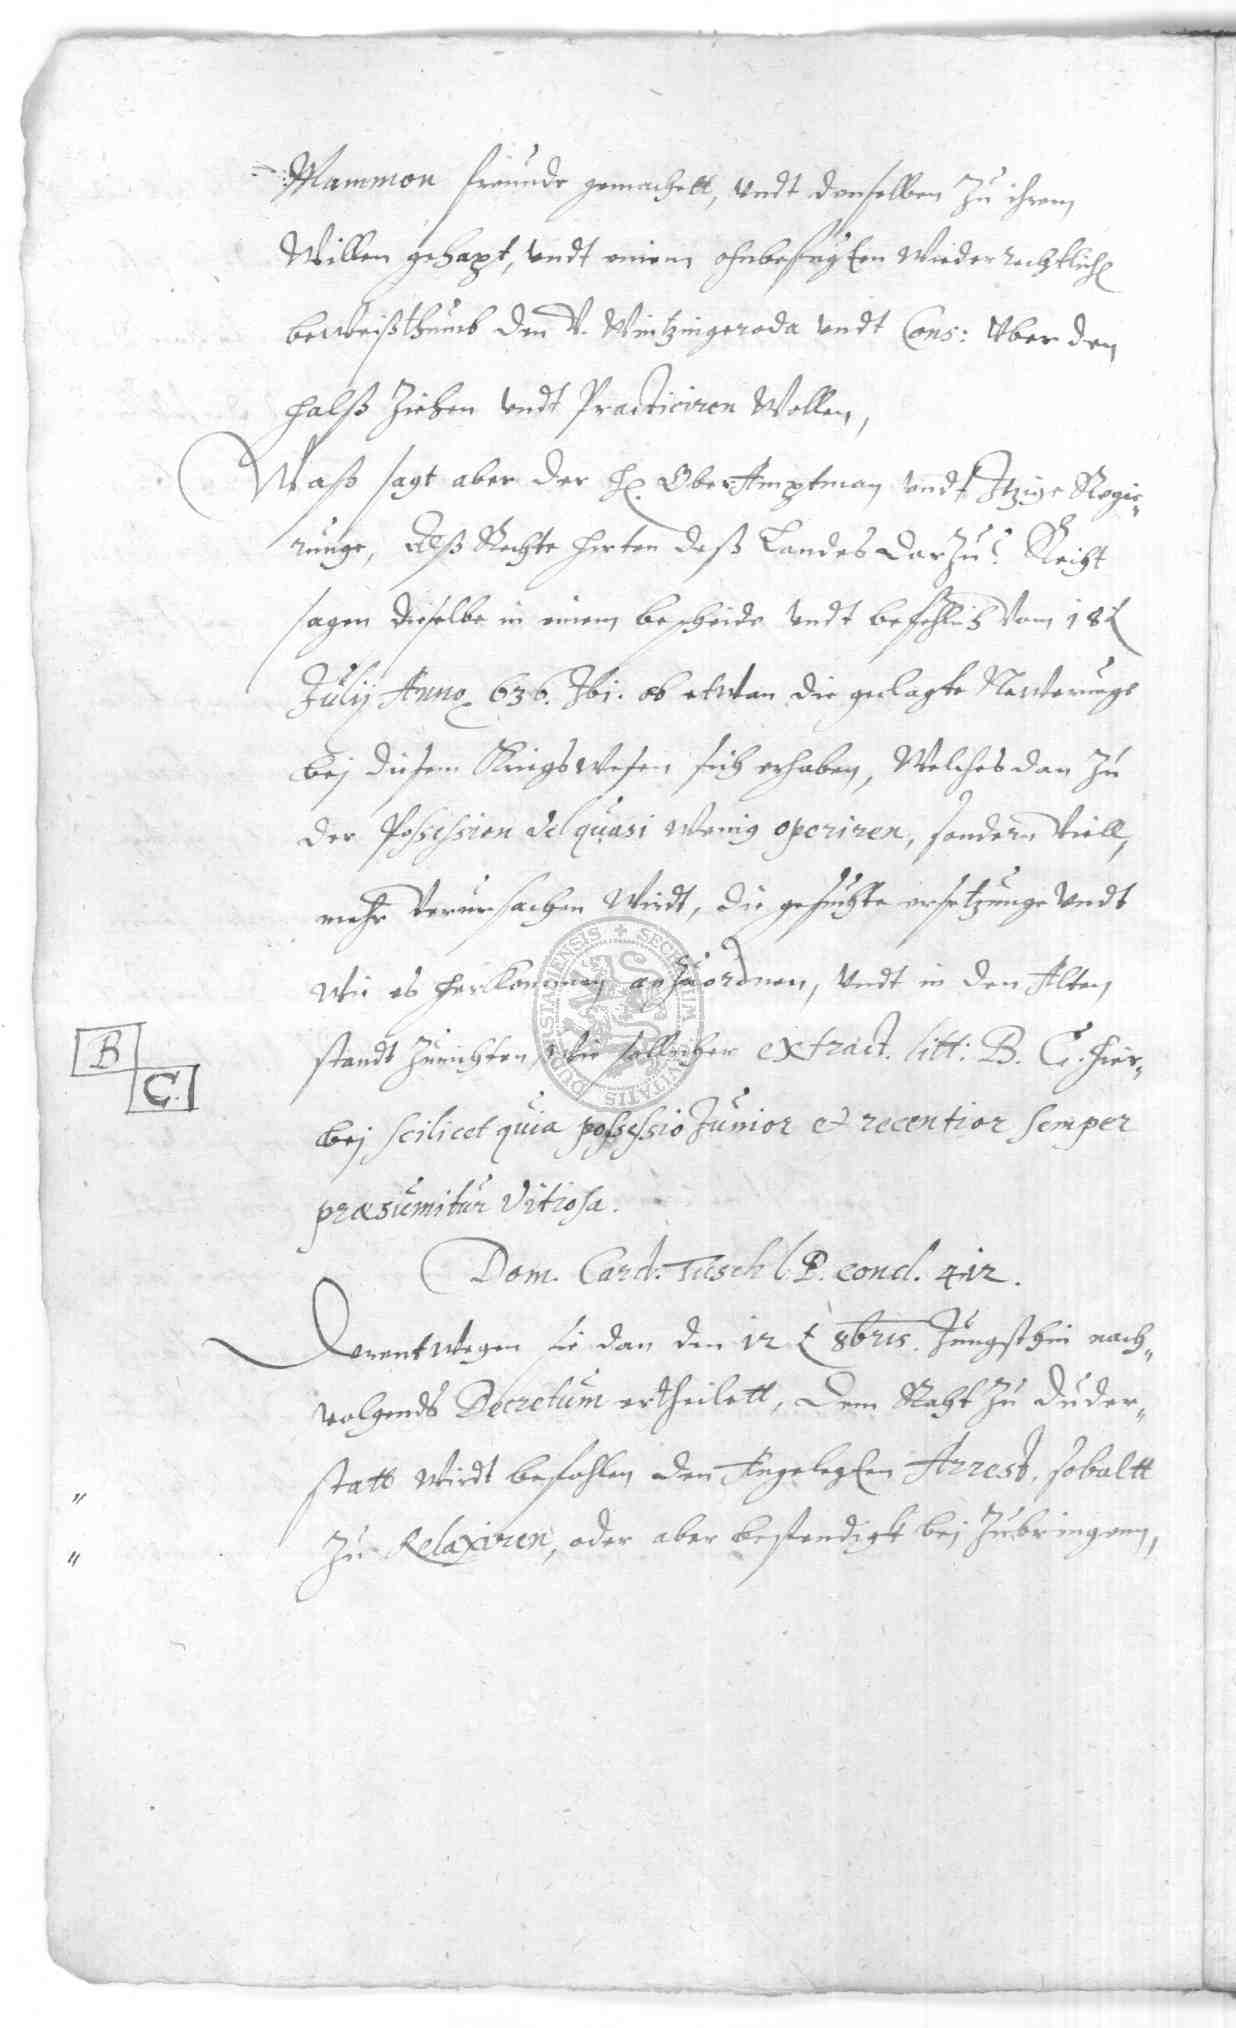 Mammon freunde gemachett, undt denselben Zu ihrem
Willen gehapt, undt einem ohnbefugten Wiederrechtlich
beweißthumb den V. Wintzingeroda undt Cons: Uber den
halß Ziehen undt Practiciren Wollen,
Waß sagt aber der H. OberAmptman undt Itzige Regie„
runge, Alß Rechte hirten deß Landes darZu? Reicht
sagen dieselbe in einem bescheide undt befehlich Vom 18t
Julij Anno 636. Ibi. ob etwan die geclagte Newerunge
bej diesem Kriegswesen sich erhaben, Welches dan Zu
der Possession vel quasi wenig operiren, sondern Viell„
mehr Verursachen Wirdt, die gesuchte ersetzunge Undt
wie es herkommen anZuordnen, undt in den Alten
standt Zurichten, Wie sollicher extract. litt: B. C. hier„
B
C.
bej scilicet quia possessio Junior et recentior semper
præsumitur Vitiosa.
Dom. Card. Tusch l. P. concl. 412.
Derentwegen sie dan den 12 t 8bris. Jungsthin nach„
volgends Decretum ertheilett, Dem Raht Zu Duder„
statt Wirdt befohlen den Angelegten Arrest, sobaltt
Zu Relaxiren, oder aber bestendigk bej Zubringenn,